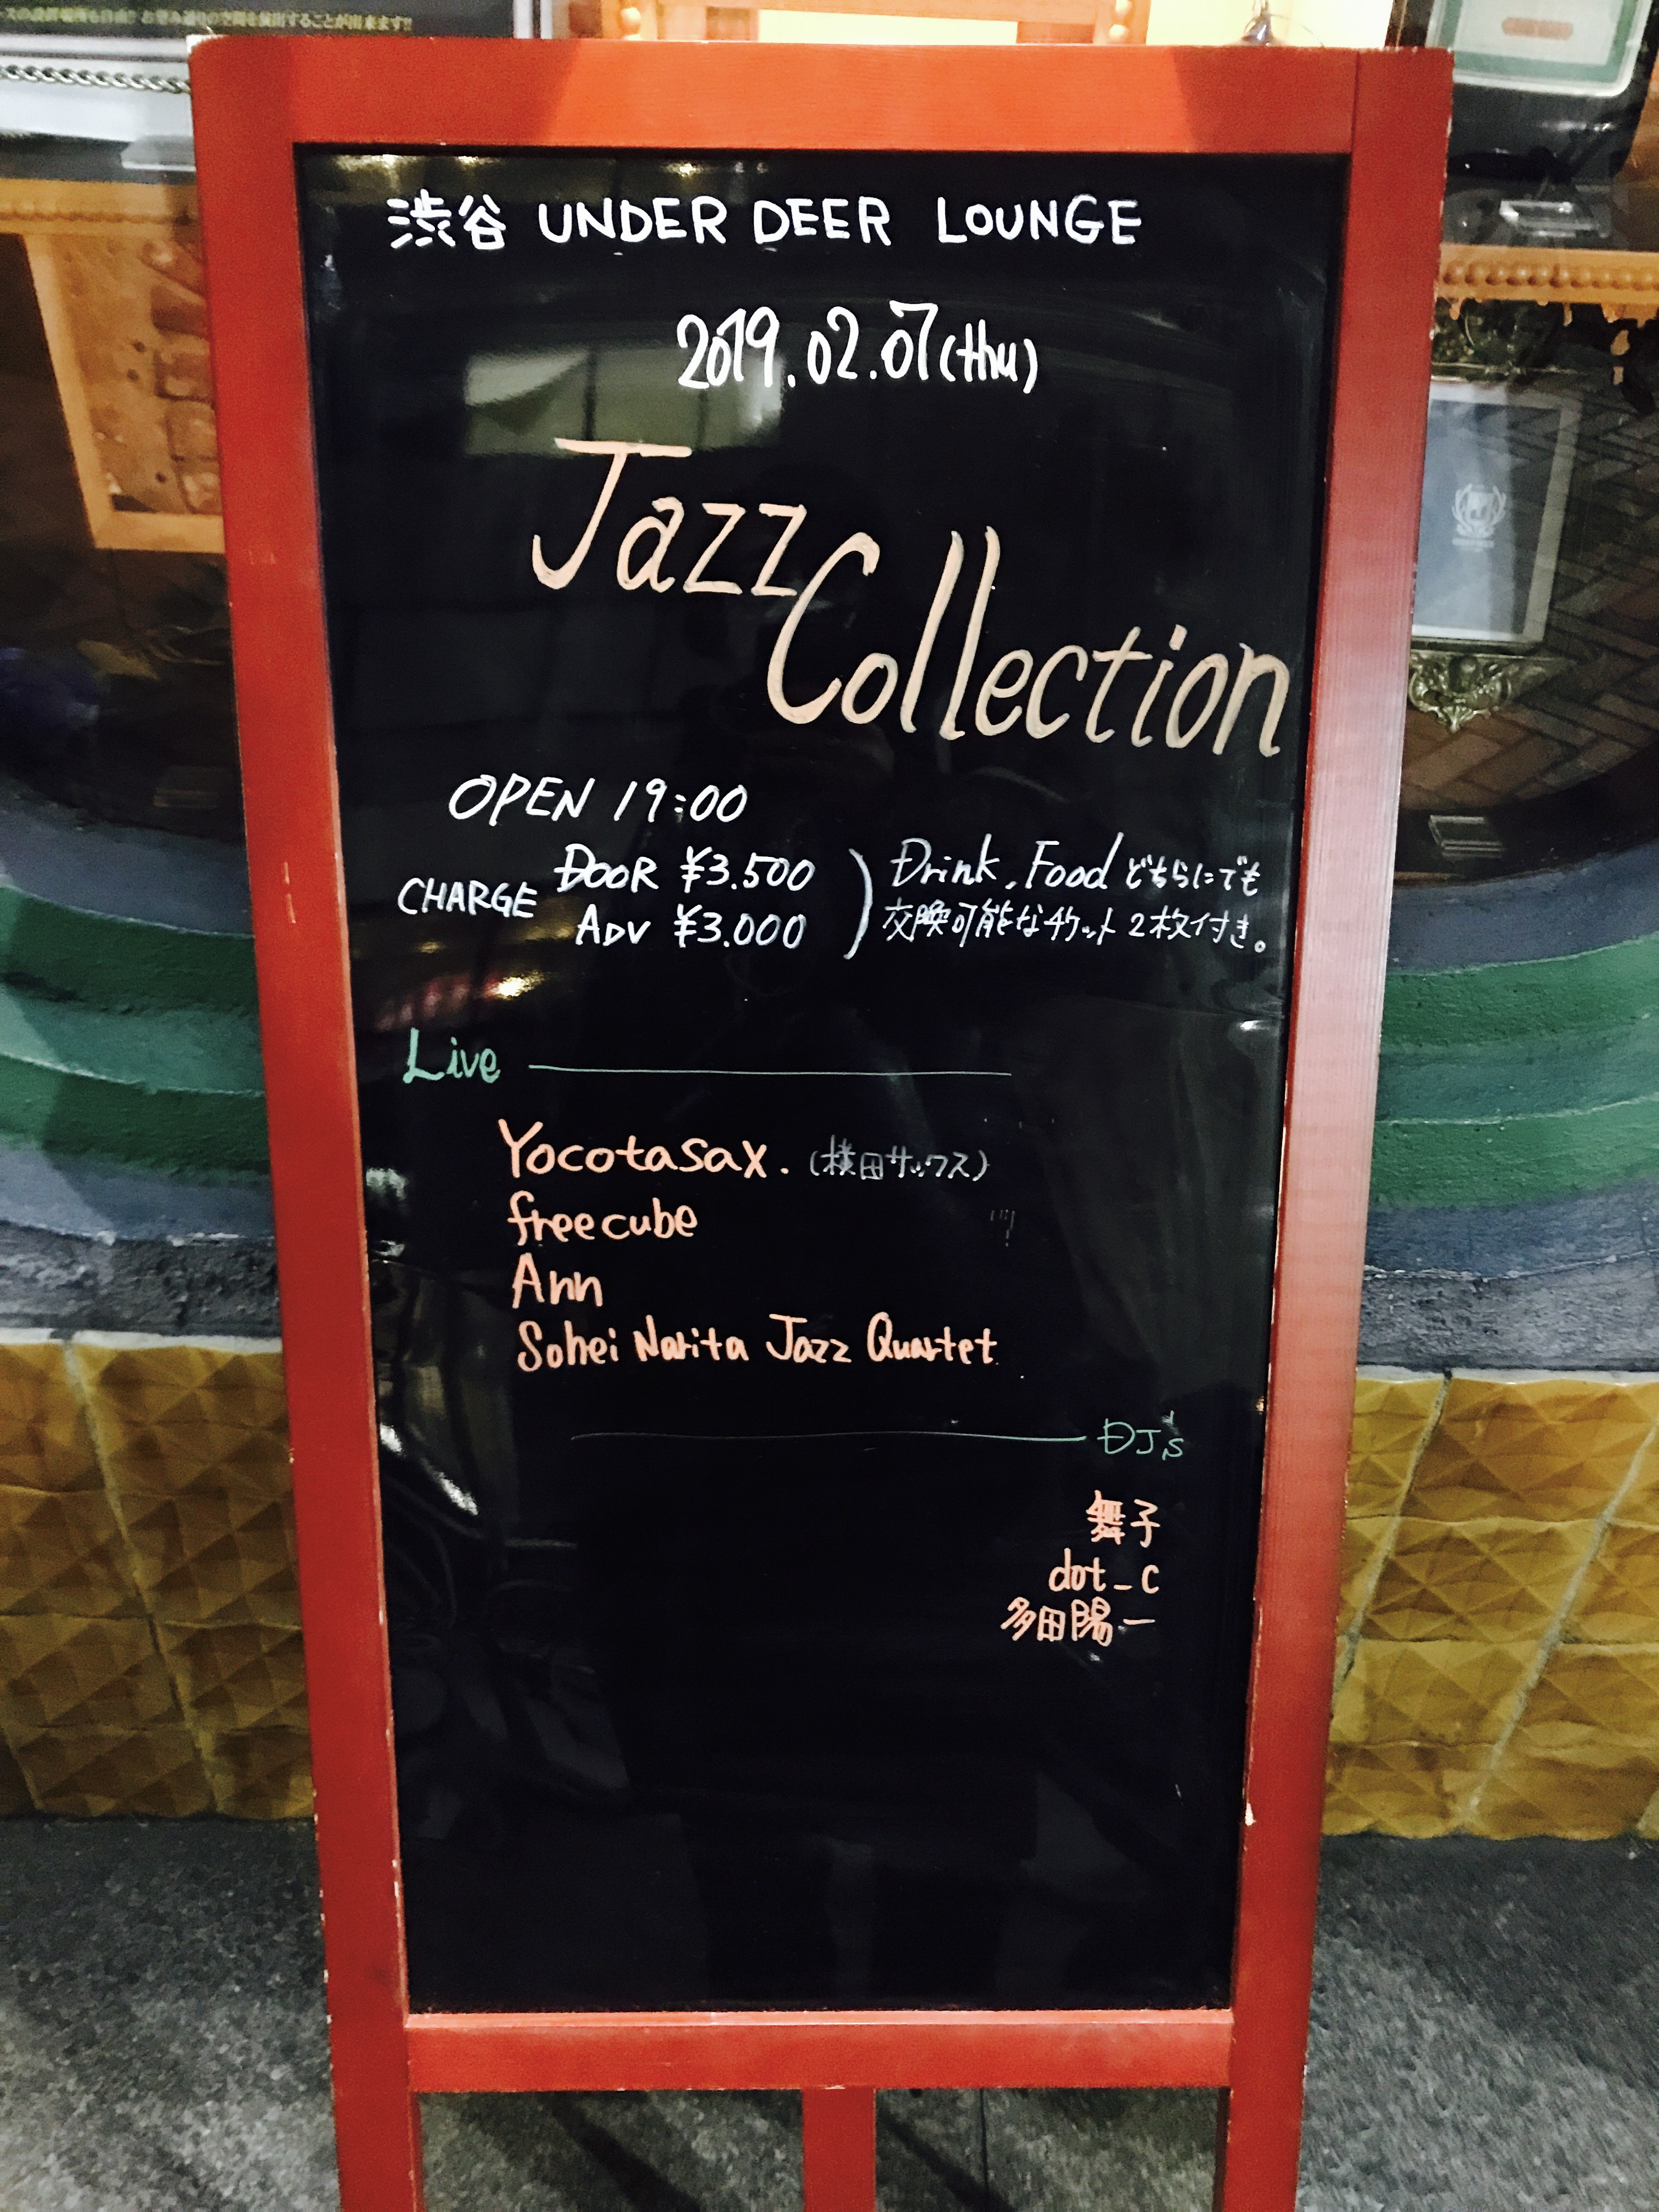 スの設置場所も自由!! お望み通りの空間を演出することが出来ます!!
渋谷 UNDER DEER LOUNGE
2019.02.07(thu)
Jazz
Collection
OPEN 19:00
CHARGE
DOOR ¥3.500
ADV ¥3.000
Drink, Food どちらにでも
交換可能なチケット2枚付き。
Live
Yocotasax. (横田サックス)
freecube
Ann
Sohei Narita Jazz Quartet
DJ's
舞子
dot_c
多田陽一